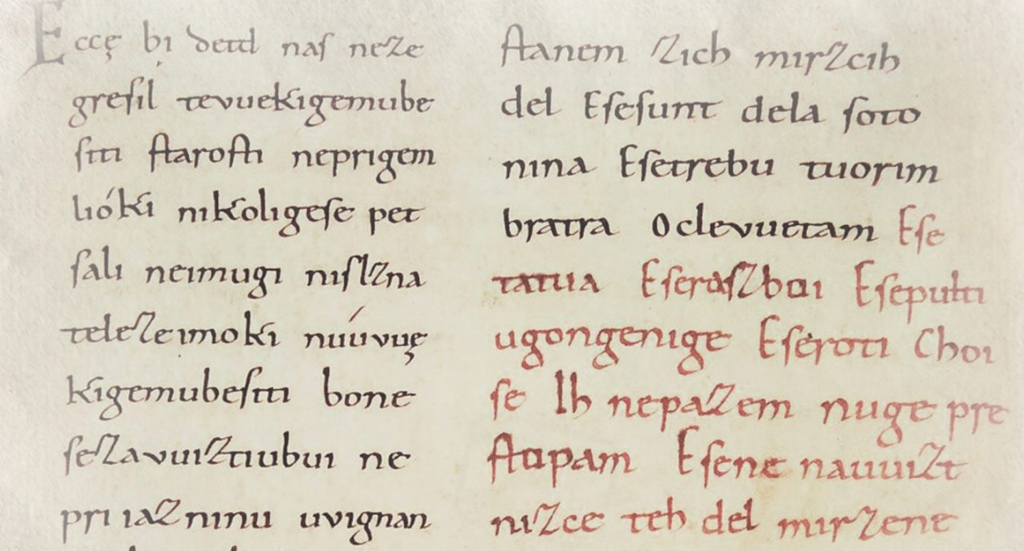 Eccę bi detd naſ neze
greſil tevuekigemube
ſiti ſtaroſti neprigem
lióki nikoligeſe pet
ſali neimugi niſlzna
telezeimoki nuúvuę
kigemubeſiti bone
ſezavuiztiubui ne
pri iazninu uvignan
ſtanem zich mirzcih
del Eſeſunt dela ſoto
nina Eſetrebu tuorim
bratra Oclevuetam Eſe
tatua Eſeraſzboi Eſepulti
ugongenige Eſeroti Choi
ſe Ih nepazem nuge pre
ſtupam Eſene nauuizt
nizce teh del mirzene